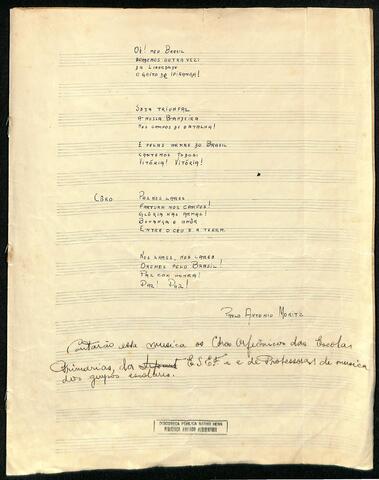 Oh! meu Brasil
Da Liberdade
O grito de Ipiranga!
Seja triunfal
A nossa Bandeira
Nos campos de batalha!
E pelas armas do Brasil
Cantemos todos:
Vitória! Vitória!
Côro
Paz nos lares
Fartura nos campos!
Glória nas armas!
Bonança e amôr
Entre o céu e a terra.
Nos lares, nos lares
Oremos pelo Brasil!
Paz com honra!
Paz! Paz!
Paulo Antonio Moritz
Cantarão esta musica os Coros Orfeônicos das Escolas
Primarias, da ESEF e de Professoras de musica
dos grupos escolares.
DISCOTECA PÚBLICA NATHO HENN